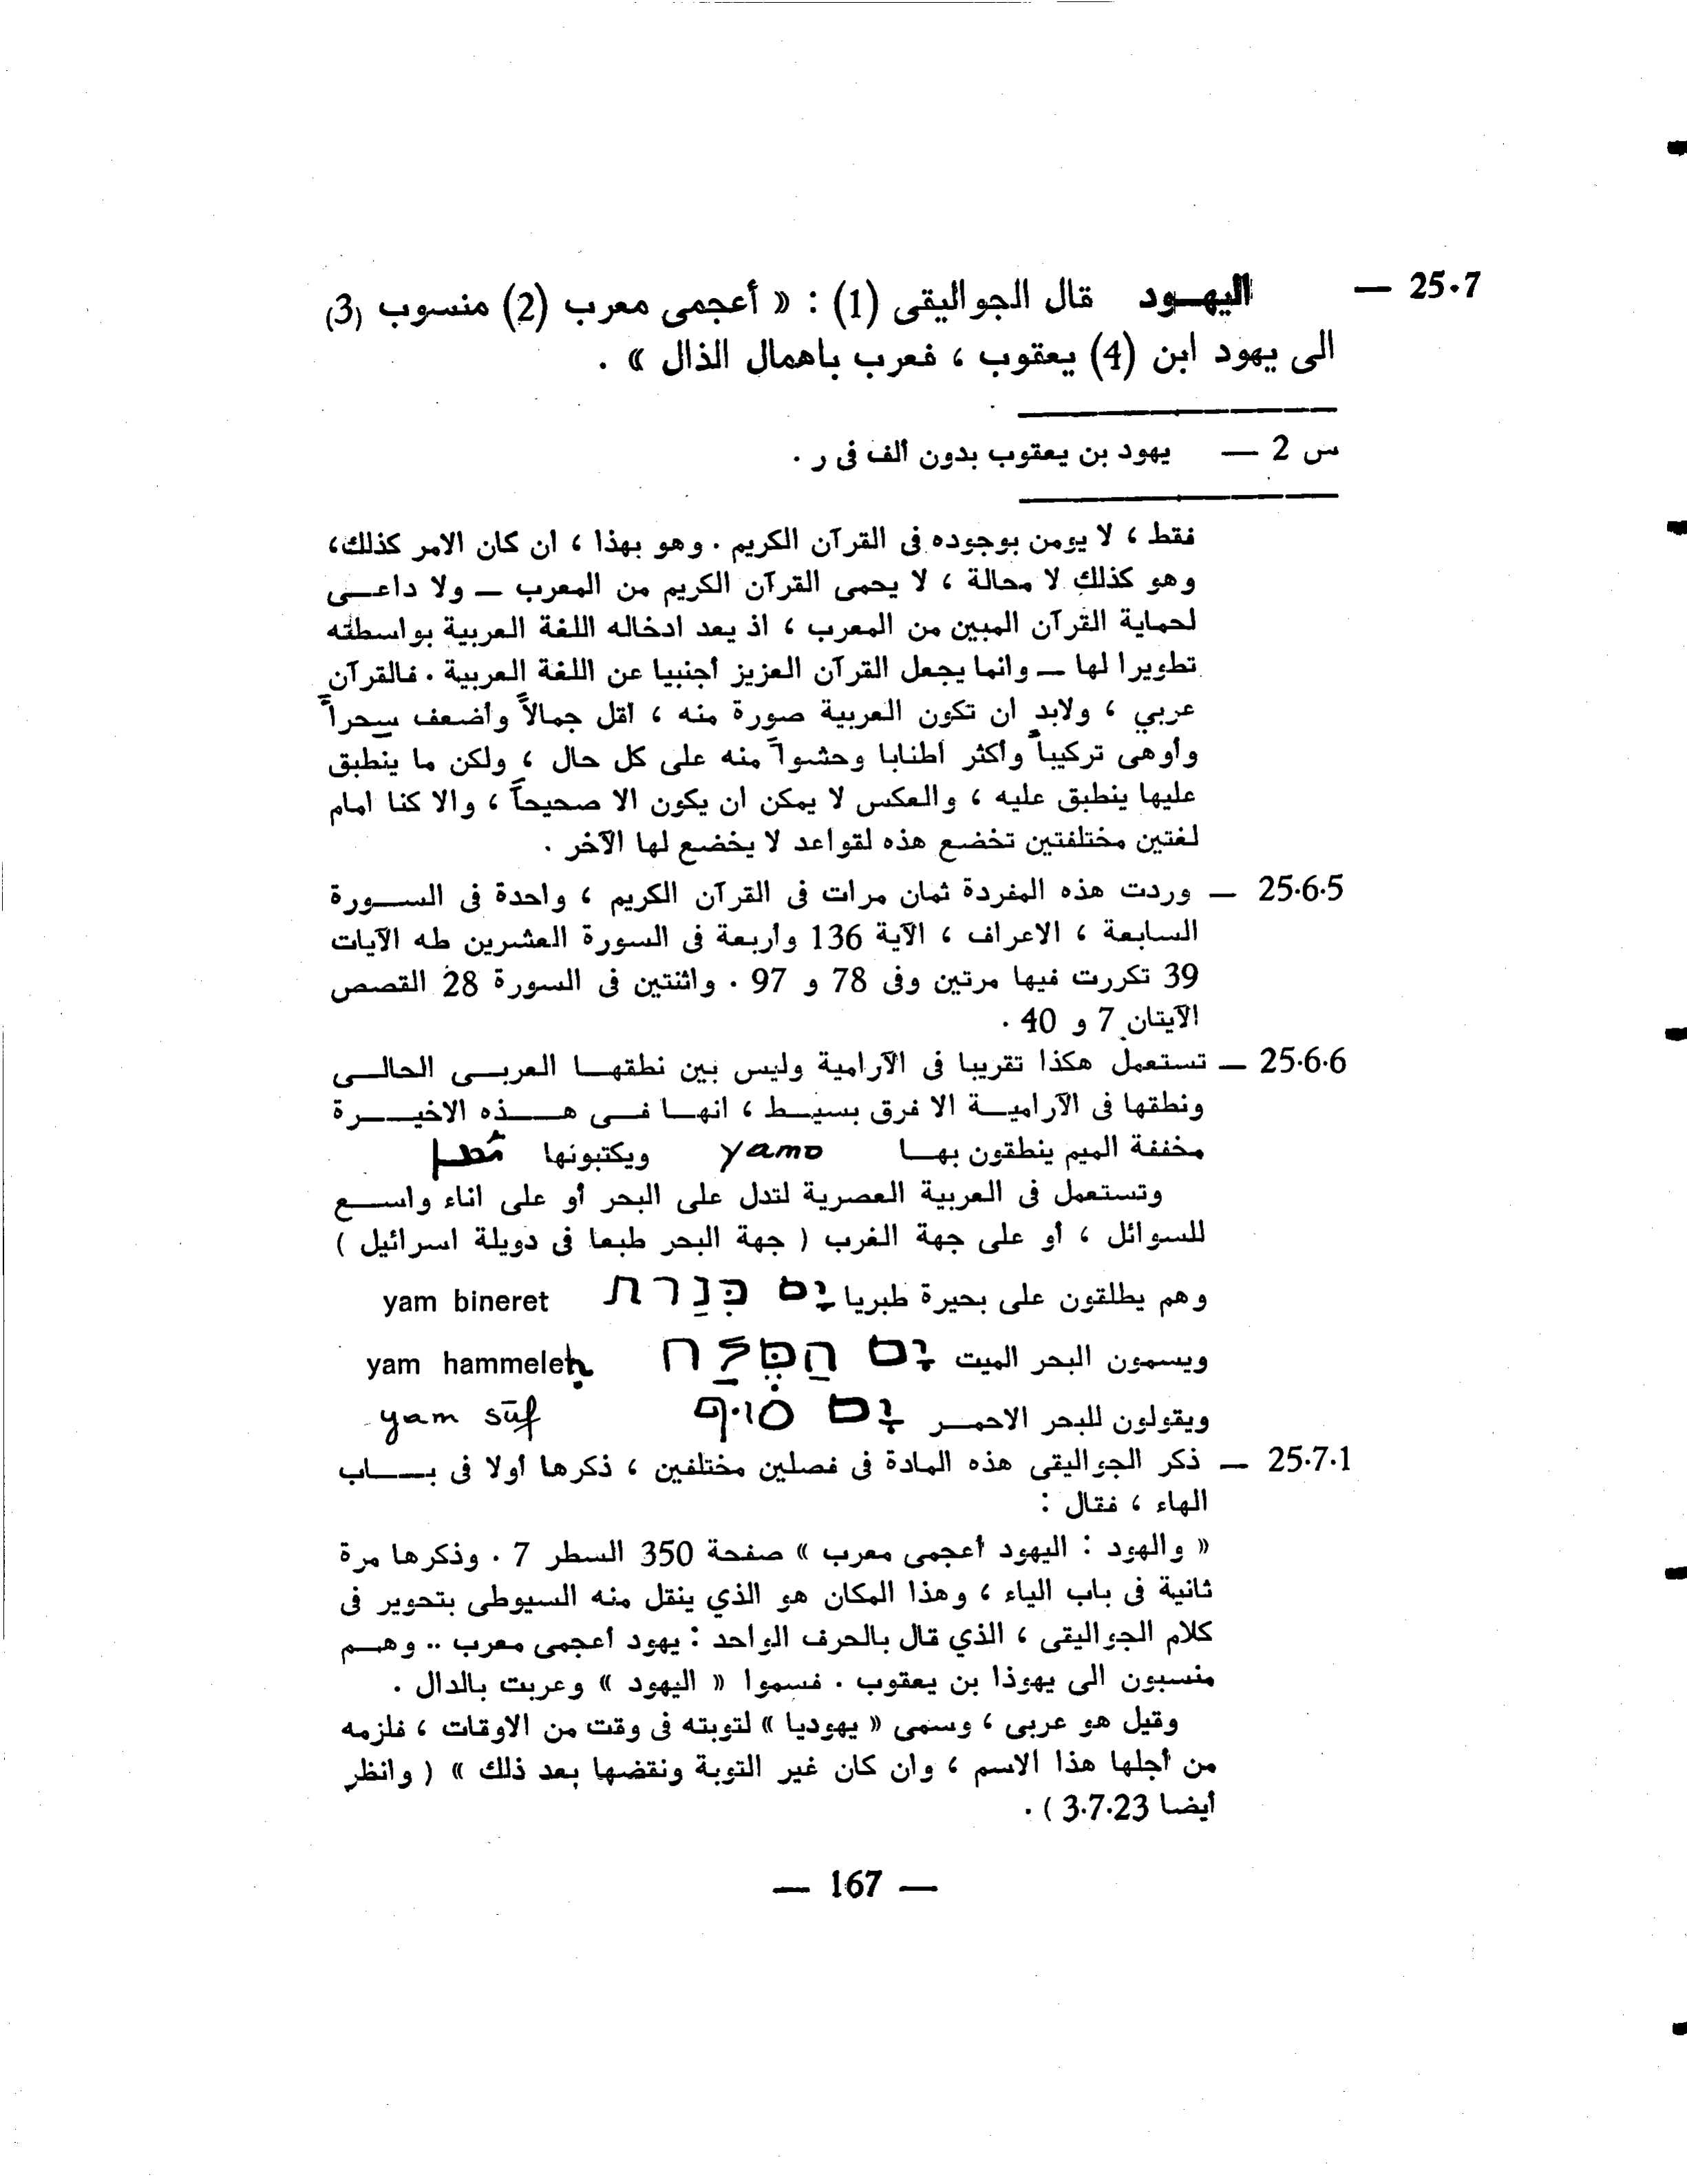 25.7 — اليهـود قال الجواليقى (1) : « أعجمى معرب (2) منسوب (3)
الى يهود ابن (4) يعقوب ، فعرب باهمال الذال » .
س 2 — يهود بن يعقوب بدون ألف فى ر .
فقط ، لا يومن بوجوده فى القرآن الكريم . وهو بهذا ، ان كان الامر كذلك،
وهو كذلك لا محالة ، لا يحمى القرآن الكريم من المعرب — ولا داعــى
لحماية القرآن المبين من المعرب ، اذ يعد ادخاله اللغة العربية بواسطته
تطويرا لها — وانما يجعل القرآن العزيز أجنبيا عن اللغة العربية . فالقرآن
عربي ، ولابد ان تكون العربية صورة منه ، أقل جمالاً وأضعف سحراً
وأوهى تركيباً وأكثر اطنابا وحشواً منه على كل حال ، ولكن ما ينطبق
عليها ينطبق عليه ، والعكس لا يمكن ان يكون الا صحيحاً ، والا كنا امام
لغتين مختلفتين تخضع هذه لقواعد لا يخضع لها الآخر .
25.6.5 — وردت هذه المفردة ثمان مرات فى القرآن الكريم ، واحدة فى الســورة
السابعة ، الاعراف ، الآية 136 وأربعة فى السورة العشرين طه الآيات
39 تكررت فيها مرتين وفى 78 و 97 . واثنتين فى السورة 28 القصص
الآيتان 7 و 40 .
25.6.6 — تستعمل هكذا تقريبا فى الآرامية وليس بين نطقهــا العربــى الحالــى
ونطقها فى الآراميــة الا فرق بسيــط ، انهــا فــى هــــذه الاخيــــرة
مخففة الميم ينطقون بهــا yamo ويكتبونها
وتستعمل فى العربية العصرية لتدل على البحر أو على اناء واســـع
للسوائل ، أو على جهة الغرب ( جهة البحر طبعا فى دويلة اسرائيل )
وهم يطلقون على بحيرة طبريا יָם כִּנֶרֶת yam bineret
ويسمون البحر الميت יָם הַמֶּלַח yam hammeleḥ
ويقولون للبحر الاحمــر יָם סוּף yam sūf
25.7.1 — ذكر الجواليقى هذه المادة فى فصلين مختلفين ، ذكرها أولا فى بــــاب
الهاء ، فقال :
« والهود : اليهود أعجمى معرب » صفحة 350 السطر 7 . وذكرها مرة
ثانية فى باب الياء ، وهذا المكان هو الذي ينقل منه السيوطى بتحوير فى
كلام الجواليقى ، الذي قال بالحرف الواحد : يهود أعجمى معرب .. وهــم
منسبون الى يهوذا بن يعقوب . فسموا « اليهود » وعربت بالدال .
وقيل هو عربى ، وسمى « يهوديا » لتوبته فى وقت من الاوقات ، فلزمه
من أجلها هذا الاسم ، وان كان غير التوبة ونقضها بعد ذلك » ( وانظر
أيضا 3.7.23 ) .
— 167 —